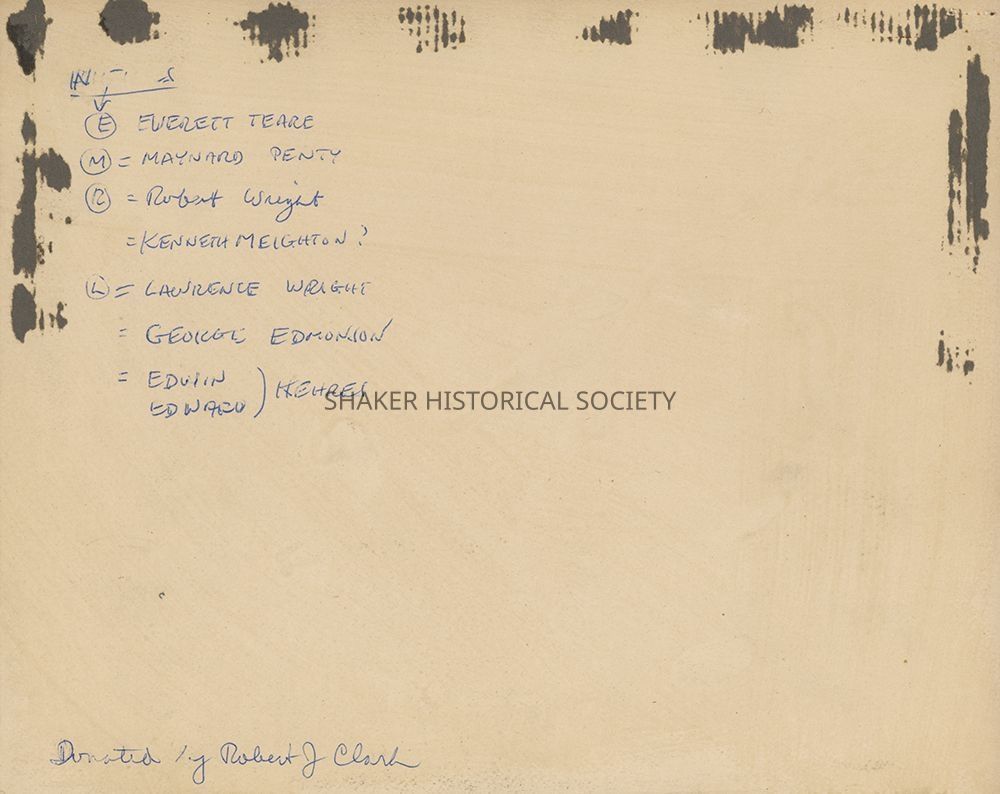 Ⓔ EVERETT TEARE
Ⓜ = MAYNARD PENTY
Ⓡ = Robert Wright
= KENNETH MEIGHTON?
Ⓛ = LAWRENCE WRIGHT
= GEORGE EDMONSON
= EDWIN
EDWARD ) KEHRES
SHAKER HISTORICAL SOCIETY
Donated by Robert J Clark